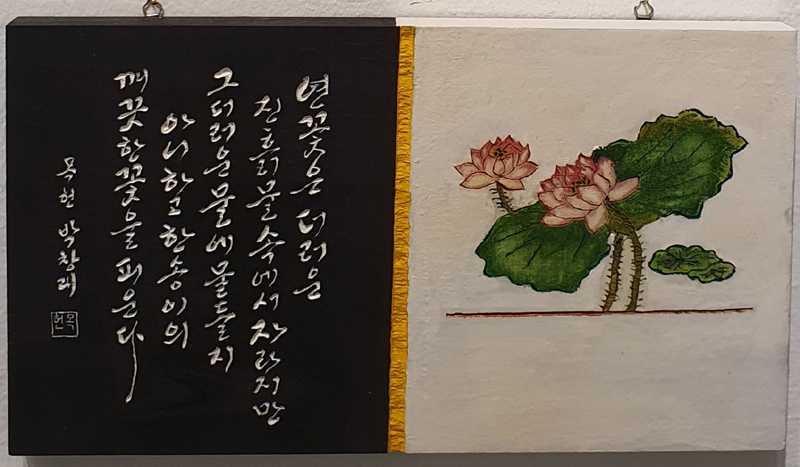 연꽃은 더러운
진흙물 속에서 자라지만
그 더러운 물에 물들지
아니하고 한 송이의
깨끗한 꽃을 피운다
목현 박창래
목현